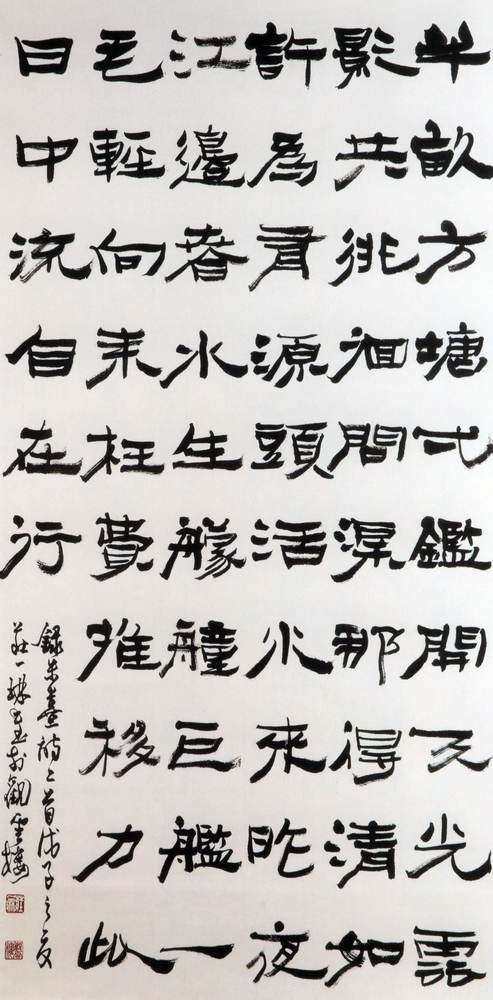 半畝方塘弌鑑開天光雲
影共徘徊問渠那得清如
許為有源頭活水來昨夜
江邊春水生艨艟巨艦一
毛輕向耒枉費推移力此
日中流自在行
錄朱熹詩二首戊子之夏
莊一書於觀雲樓